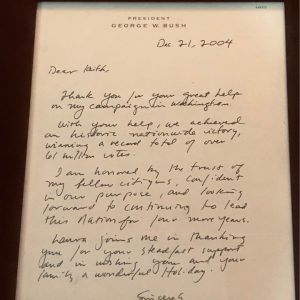 PRESIDENT
GEORGE W. BUSH
Dec 21, 2004
Dear Keith,
Thank you for your great help
on my campaign in Washington.
With your help, we achieved
an historic nationwide victory,
winning a record total of over
61 million votes.
I am honored by the trust of
my fellow citizens, confident
in our purpose, and looking
forward to continuing to lead
this Nation for four more years.
Laura joins me in thanking
you for your steadfast support
and in wishing you and your
family a wonderful Holiday.
Sincerely